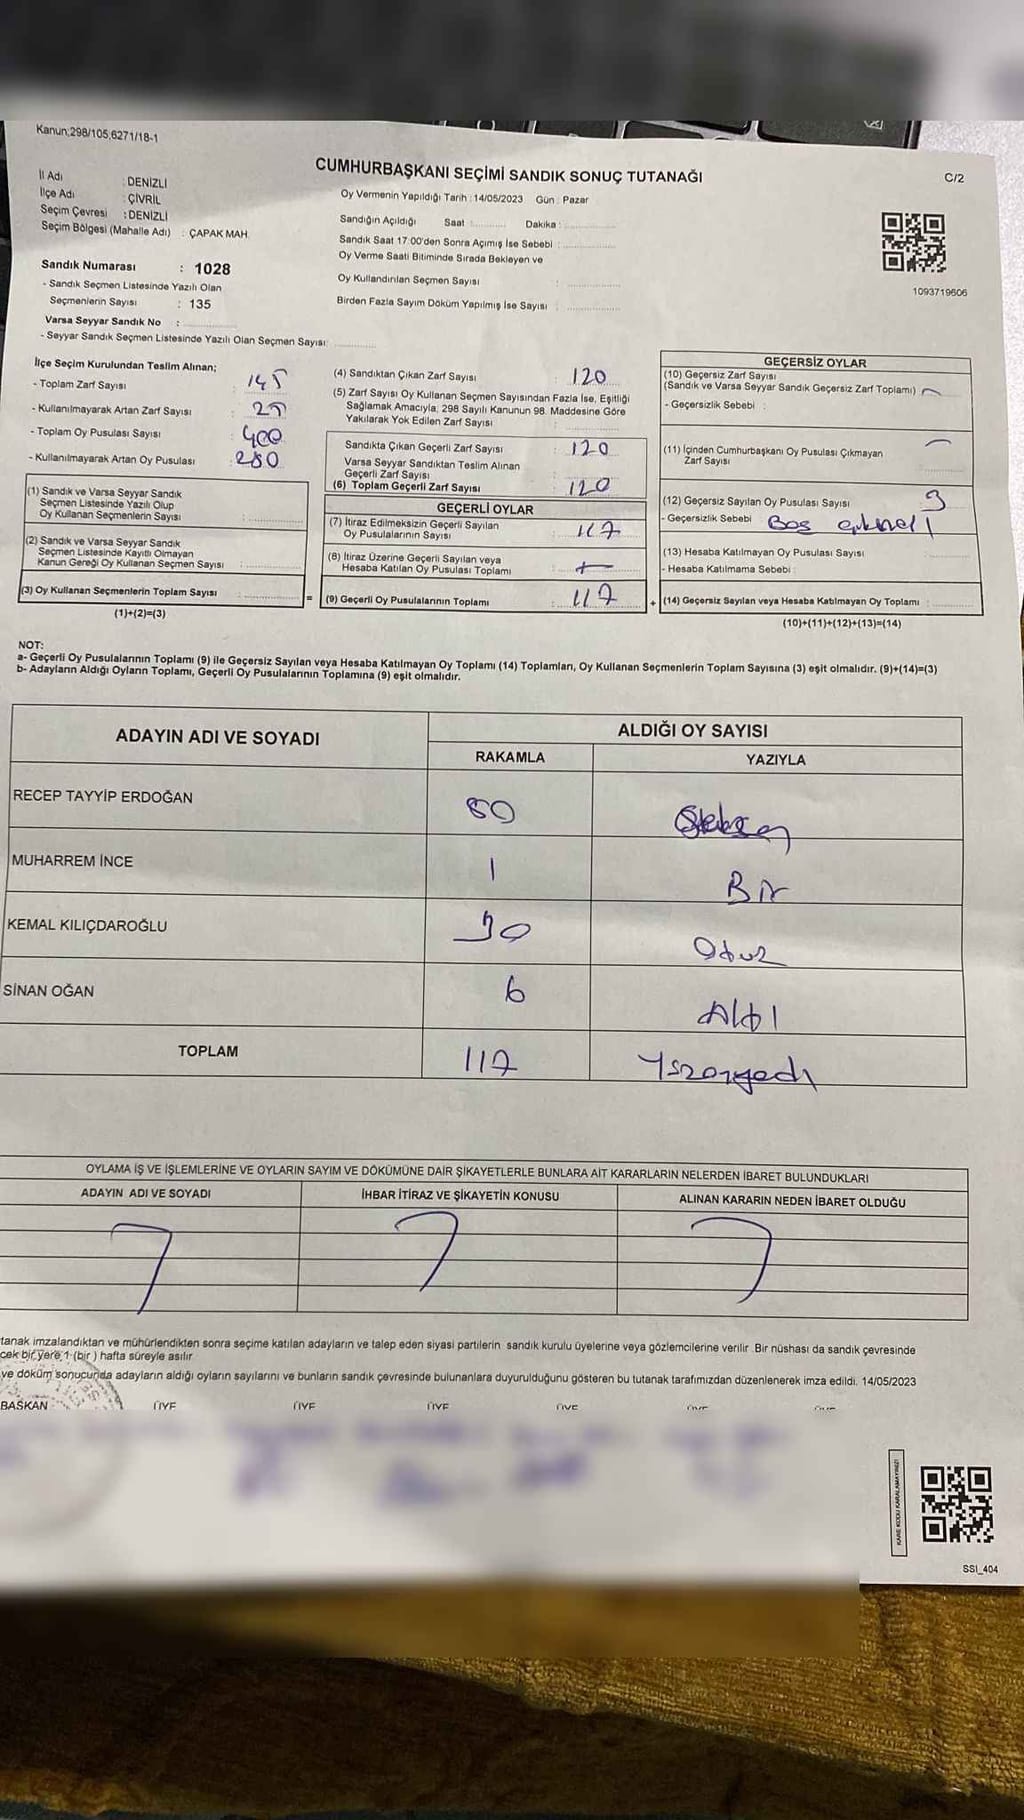 Kanun;298/105,6271/18-1
CUMHURBAŞKANI SEÇİMİ SANDIK SONUÇ TUTANAĞI
C/2
İl Adı : DENİZLİ
İlçe Adı : ÇİVRİL
Seçim Çevresi : DENİZLİ
Seçim Bölgesi (Mahalle Adı) : ÇAPAK MAH.
Sandık Numarası : 1028
- Sandık Seçmen Listesinde Yazılı Olan
Seçmenlerin Sayısı : 135
Varsa Seyyar Sandık No :
- Seyyar Sandık Seçmen Listesinde Yazılı Olan Seçmen Sayısı:
Oy Vermenin Yapıldığı Tarih : 14/05/2023 Gün : Pazar
Sandığın Açıldığı Saat : Dakika :
Sandık Saat 17:00'den Sonra Açımış İse Sebebi :
Oy Verme Saati Bitiminde Sırada Bekleyen ve
Oy Kullandırılan Seçmen Sayısı :
Birden Fazla Sayım Döküm Yapılmış İse Sayısı :
1093719606
İlçe Seçim Kurulundan Teslim Alınan;
- Toplam Zarf Sayısı : 145
- Kullanılmayarak Artan Zarf Sayısı : 25
- Toplam Oy Pusulası Sayısı : 400
- Kullanılmayarak Artan Oy Pusulası : 280
(1) Sandık ve Varsa Seyyar Sandık
Seçmen Listesinde Yazılı Olup
Oy Kullanan Seçmenlerin Sayısı :
(2) Sandık ve Varsa Seyyar Sandık
Seçmen Listesinde Kayıtlı Olmayan
Kanun Gereği Oy Kullanan Seçmen Sayısı :
(3) Oy Kullanan Seçmenlerin Toplam Sayısı : =
(1)+(2)=(3)
(4) Sandıktan Çıkan Zarf Sayısı : 120
(5) Zarf Sayısı Oy Kullanan Seçmen Sayısından Fazla İse, Eşitliği
Sağlamak Amacıyla, 298 Sayılı Kanunun 98. Maddesine Göre
Yakılarak Yok Edilen Zarf Sayısı :
Sandıkta Çıkan Geçerli Zarf Sayısı : 120
Varsa Seyyar Sandıktan Teslim Alınan
Geçerli Zarf Sayısı :
(6) Toplam Geçerli Zarf Sayısı : 120
GEÇERLİ OYLAR
(7) İtiraz Edilmeksizin Geçerli Sayılan
Oy Pusulalarının Sayısı : 117
(8) İtiraz Üzerine Geçerli Sayılan veya
Hesaba Katılan Oy Pusulası Toplamı :
(9) Geçerli Oy Pusulalarının Toplamı : 117 +
GEÇERSİZ OYLAR
(10) Geçersiz Zarf Sayısı
(Sandık ve Varsa Seyyar Sandık Geçersiz Zarf Toplamı) :
- Geçersizlik Sebebi :
(11) İçinden Cumhurbaşkanı Oy Pusulası Çıkmayan
Zarf Sayısı
(12) Geçersiz Sayılan Oy Pusulası Sayısı 3
- Geçersizlik Sebebi Boş
(13) Hesaba Katılmayan Oy Pusulası Sayısı
- Hesaba Katılmama Sebebi :
(14) Geçersiz Sayılan veya Hesaba Katılmayan Oy Toplamı :
(10)+(11)+(12)+(13)=(14)
NOT:
a- Geçerli Oy Pusulalarının Toplamı (9) ile Geçersiz Sayılan veya Hesaba Katılmayan Oy Toplamı (14) Toplamları, Oy Kullanan Seçmenlerin Toplam Sayısına (3) eşit olmalıdır. (9)+(14)=(3)
b- Adayların Aldığı Oyların Toplamı, Geçerli Oy Pusulalarının Toplamına (9) eşit olmalıdır.
ADAYIN ADI VE SOYADI
ALDIĞI OY SAYISI
RAKAMLA YAZIYLA
RECEP TAYYİP ERDOĞAN 80 Seksen
MUHARREM İNCE 1 Bir
KEMAL KILIÇDAROĞLU 30 Otuz
SİNAN OĞAN 6 Altı
TOPLAM 117 Yüzonyedi
OYLAMA İŞ VE İŞLEMLERİNE VE OYLARIN SAYIM VE DÖKÜMÜNE DAİR ŞİKAYETLERLE BUNLARA AİT KARARLARIN NELERDEN İBARET BULUNDUKLARI
ADAYIN ADI VE SOYADI İHBAR İTİRAZ VE ŞİKAYETİN KONUSU ALINAN KARARIN NEDEN İBARET OLDUĞU
tanak imzalandıktan ve mühürlendikten sonra seçime katılan adayların ve talep eden siyasi partilerin sandık kurulu üyelerine veya gözlemcilerine verilir. Bir nüshası da sandık çevresinde
cek bir yere 1 (bir) hafta süreyle asılır.
ve döküm sonucunda adayların aldığı oyların sayılarını ve bunların sandık çevresinde bulunanlara duyurulduğunu gösteren bu tutanak tarafımızdan düzenlenerek imza edildi. 14/05/2023
BAŞKAN ÜYE ÜYE ÜYE ÜYE ÜYE ÜYE
KARE KODU KARALAMAYINIZ!
SSI_404